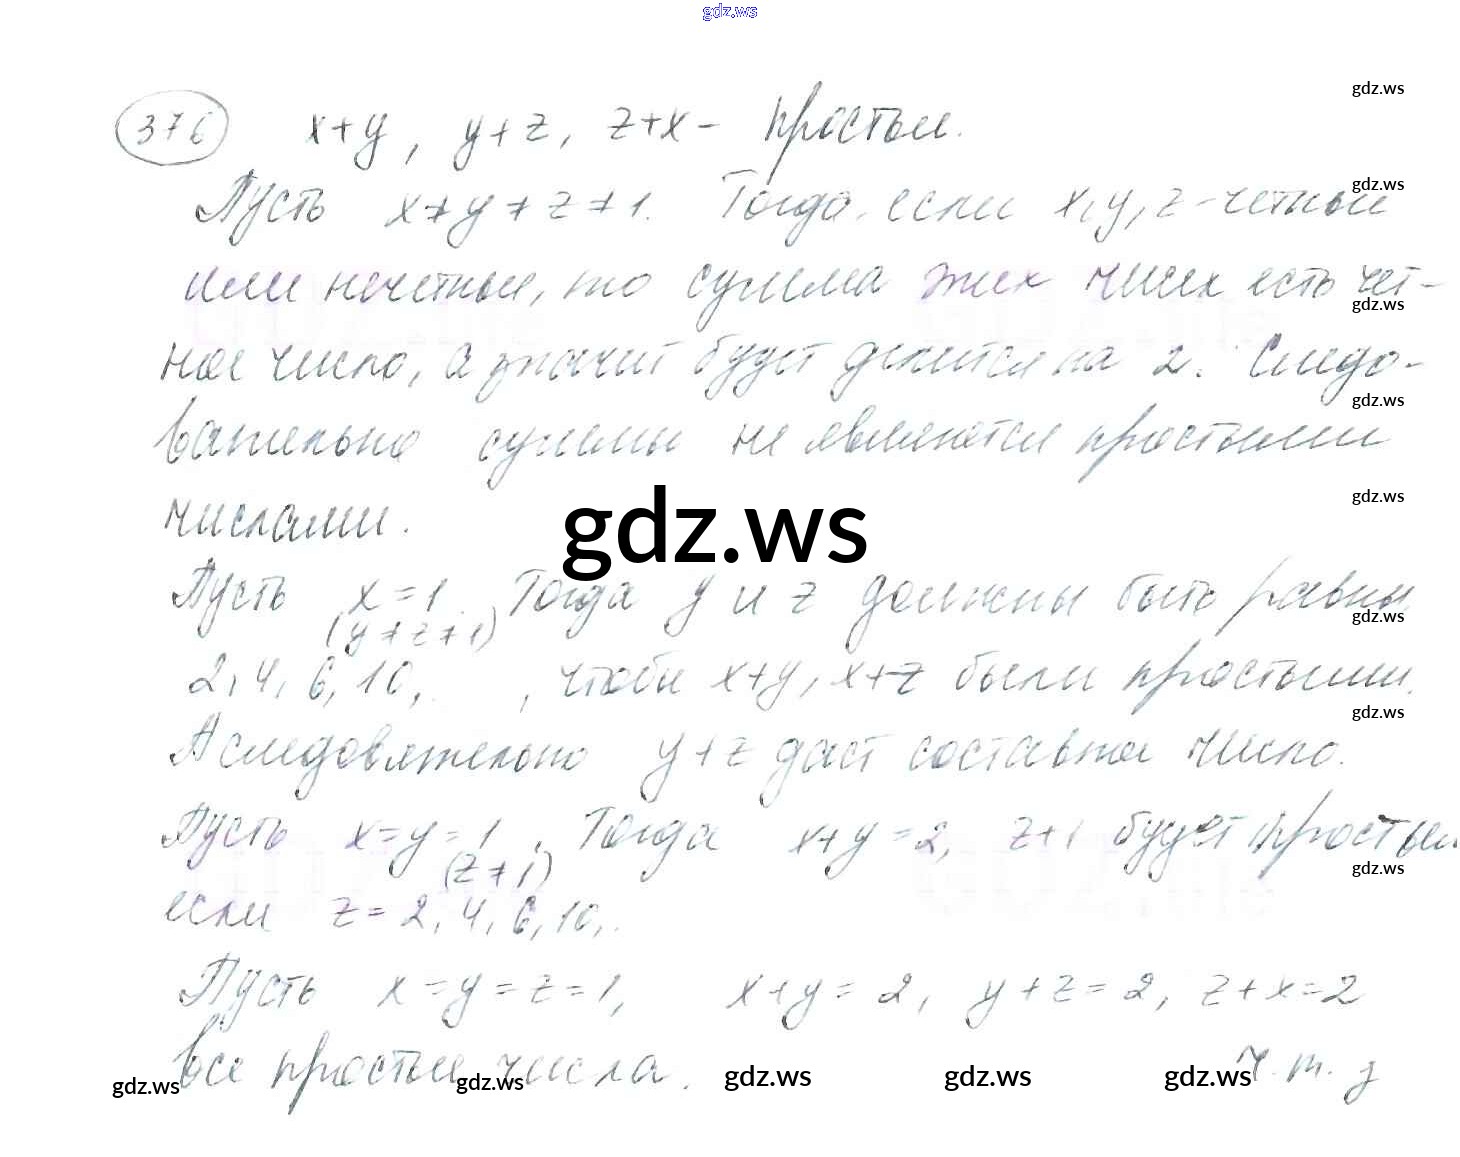 gdz.ws
gdz.ws
376 x+y, y+z, z+x - простые.
Пусть x≠y≠z≠1. Тогда, если x, y, z - четные
gdz.ws
или нечетные, то сумма этих чисел есть чет-
gdz.ws
ное число, а значит будет делится на 2. Следо-
gdz.ws
вательно суммы не являются простыми
gdz.ws
числами.
gdz.ws
Пусть x=1. Тогда y и z должны быть равны
(y≠z≠1)
gdz.ws
2, 4, 6, 10, , чтобы x+y, x+z были простыми.
gdz.ws
А следовательно y+z даст составное число.
Пусть x=y=1. Тогда x+y=2, z+1 будет простым
(z≠1)
gdz.ws
если z=2, 4, 6, 10,..
Пусть x=y=z=1, x+y=2, y+z=2, z+x=2
все простые числа. ч.т.д
gdz.ws gdz.ws gdz.ws gdz.ws gdz.ws